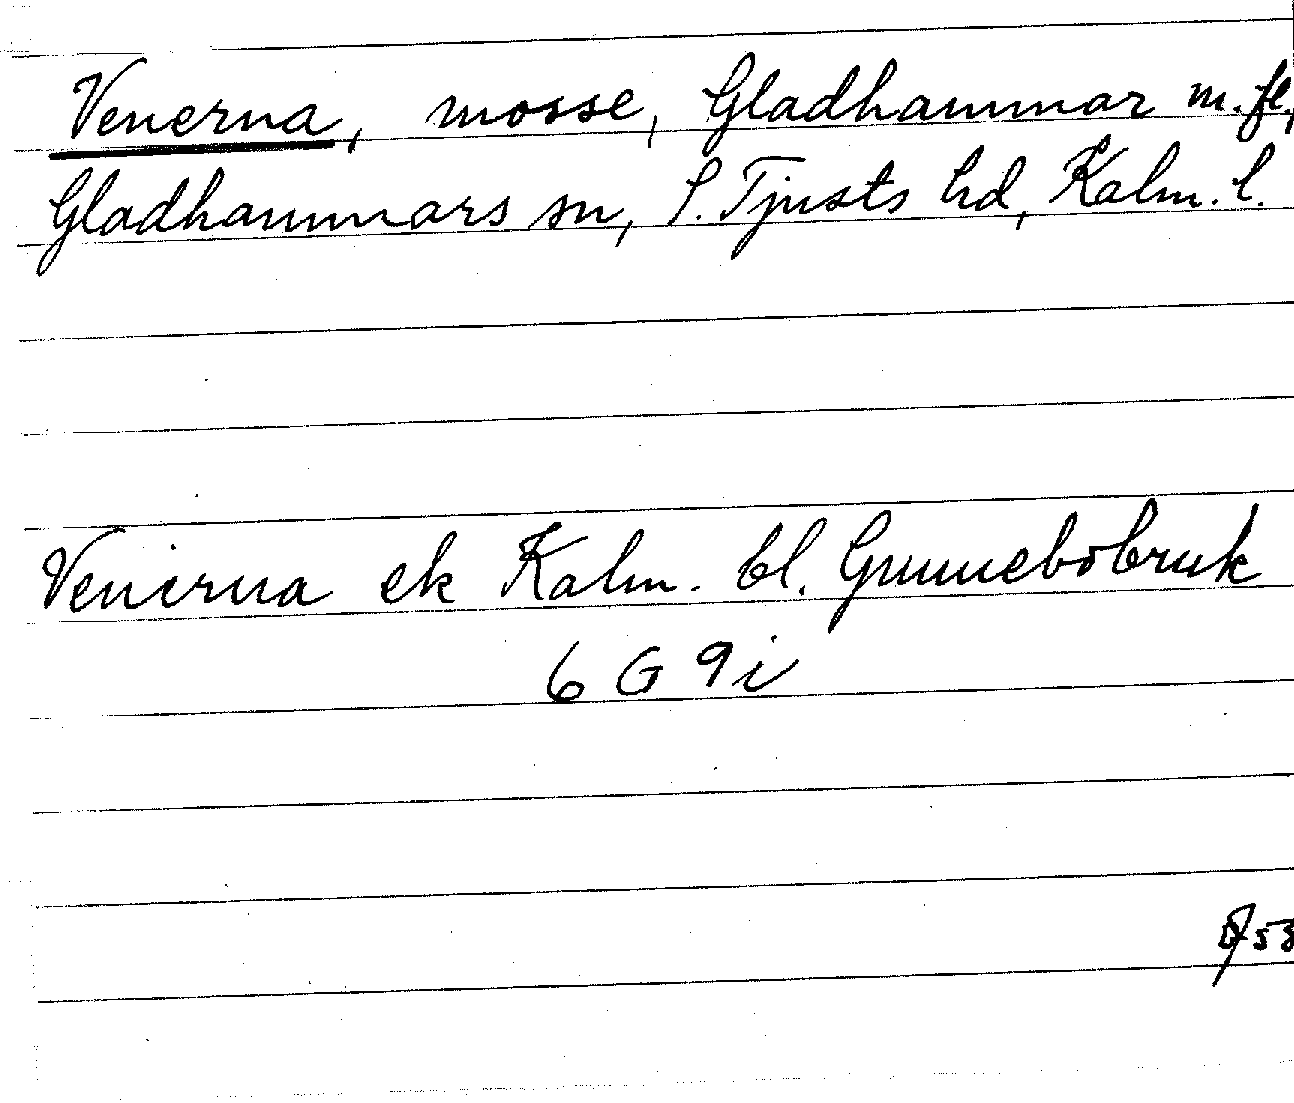 Venerna, mosse, Gladhammar m.fl.,
Gladhammars sn, S. Tjusts hd, Kalm. l.
Venerna ek Kalm. bl. Gunnebobruk
6 G 9 i
53